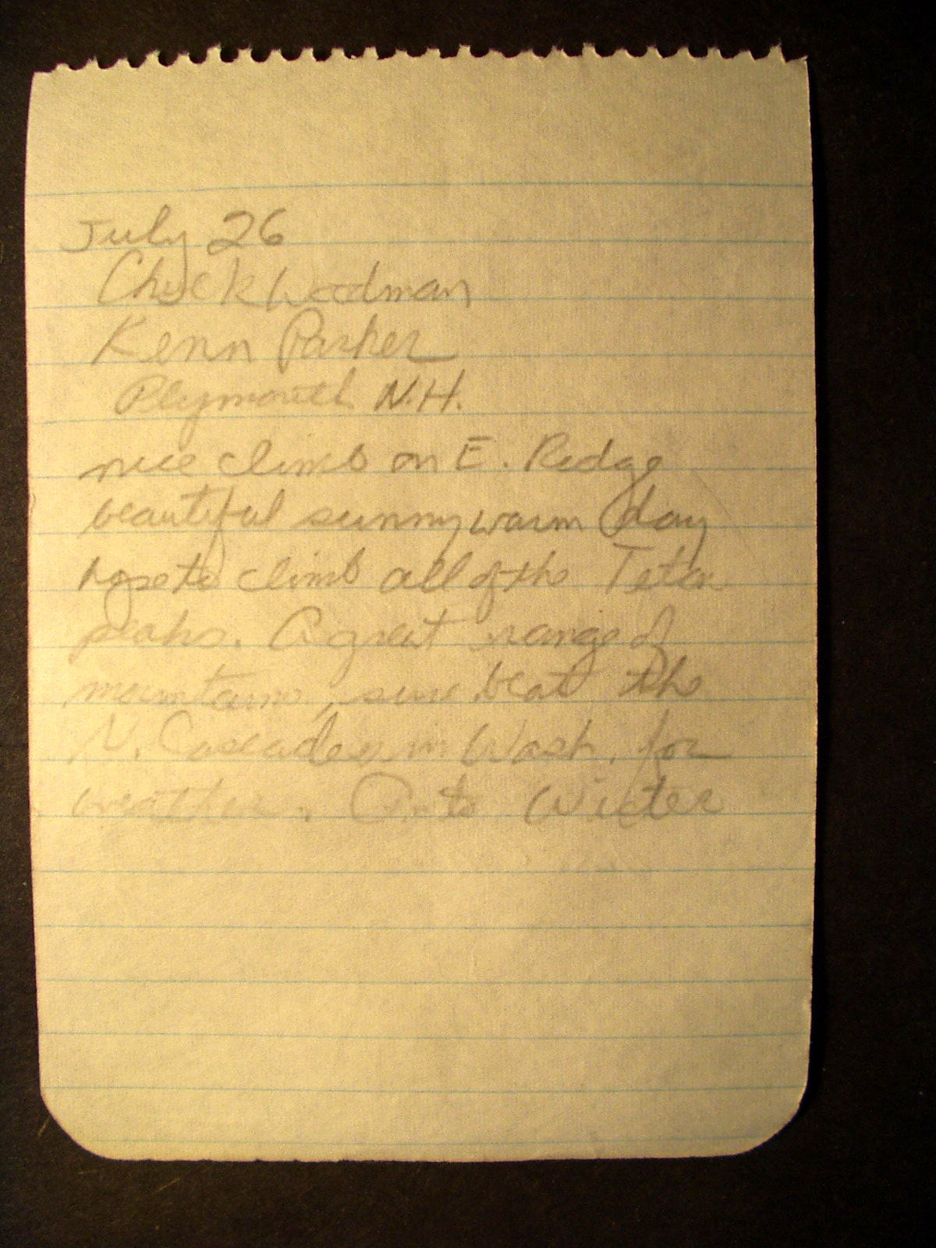 July 26
Chuck Woodman
Kenn Parker
Plymouth N.H.
nice climb on E. Ridge
beautiful sunny warm day
hope to climb all of the Teton
peaks. A great range of
mountains, sure beat the
N. Cascades in Wash. for
weather. Onto Wister